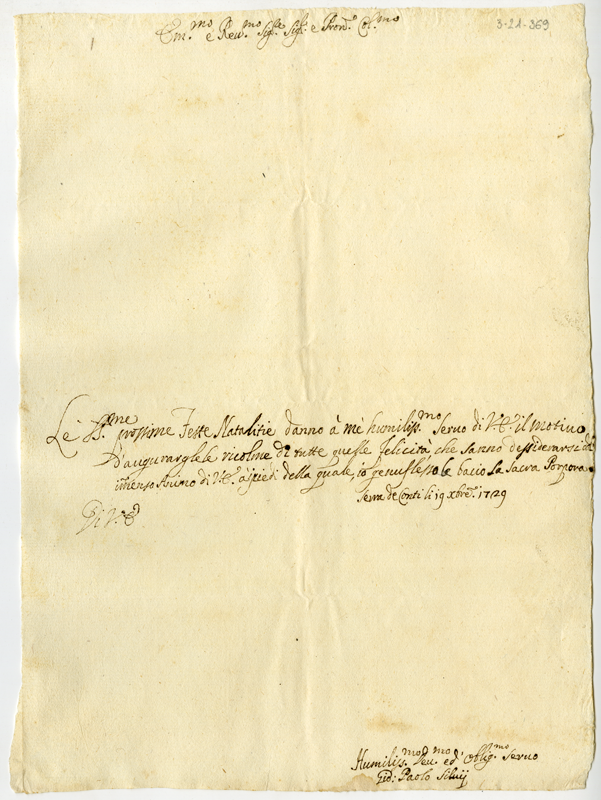 3-21-369
Em.mo e Rev.mo Sig.re Sig.r e Pron.e Col.mo
Le SS.me prossime Feste Natalitie danno à mè humiliss.mo Servo di V.E. il motivo
d'augurargle le ricolme di tutte quelle felicità, che sanno dessiderarsi dal
immenso Animo di V.E. à piedi della quale, io genuflesso le bacio la Sacra Porpora
Serra de Conti li 19 xbre 1729
Di V.E.
Humiliss.mo Dev.mo ed' Oblig.mo Servo
Gio: Paolo Silvij